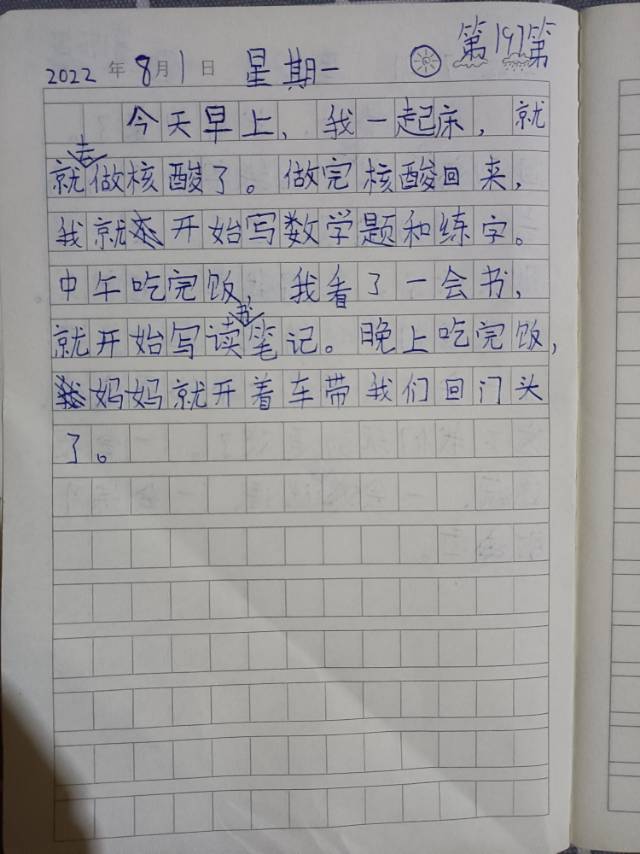 2022年8月1日 星期一 第197第
今天早上、我一起床，就
就去做核酸了。做完核酸回来，
我就开始写数学题和练字。
中午吃完饭，我看了一会书，
就开始写读书笔记。晚上吃完饭，
妈妈就开着车带我们回门头
了。